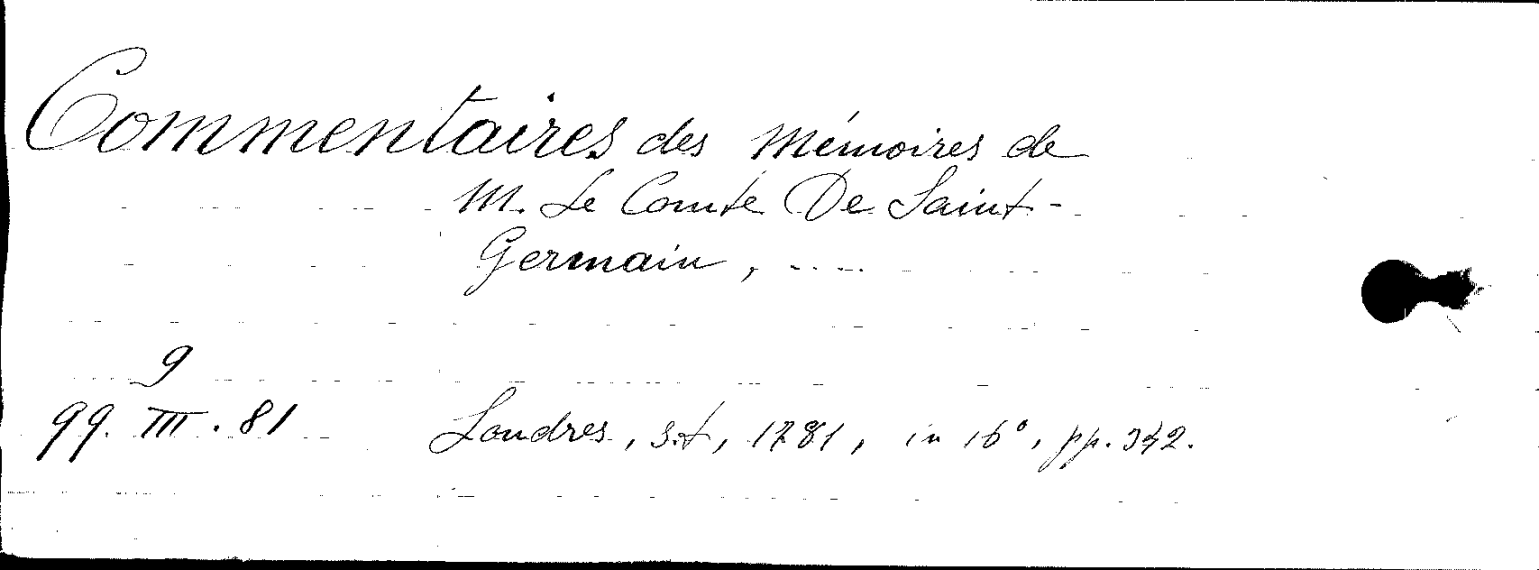 Commentaires des Mémoires de
M. Le Comte De Saint-
Germain, .....
9
99. III. 81 Londres, s.t, 1781, in 16°, pp. 342.